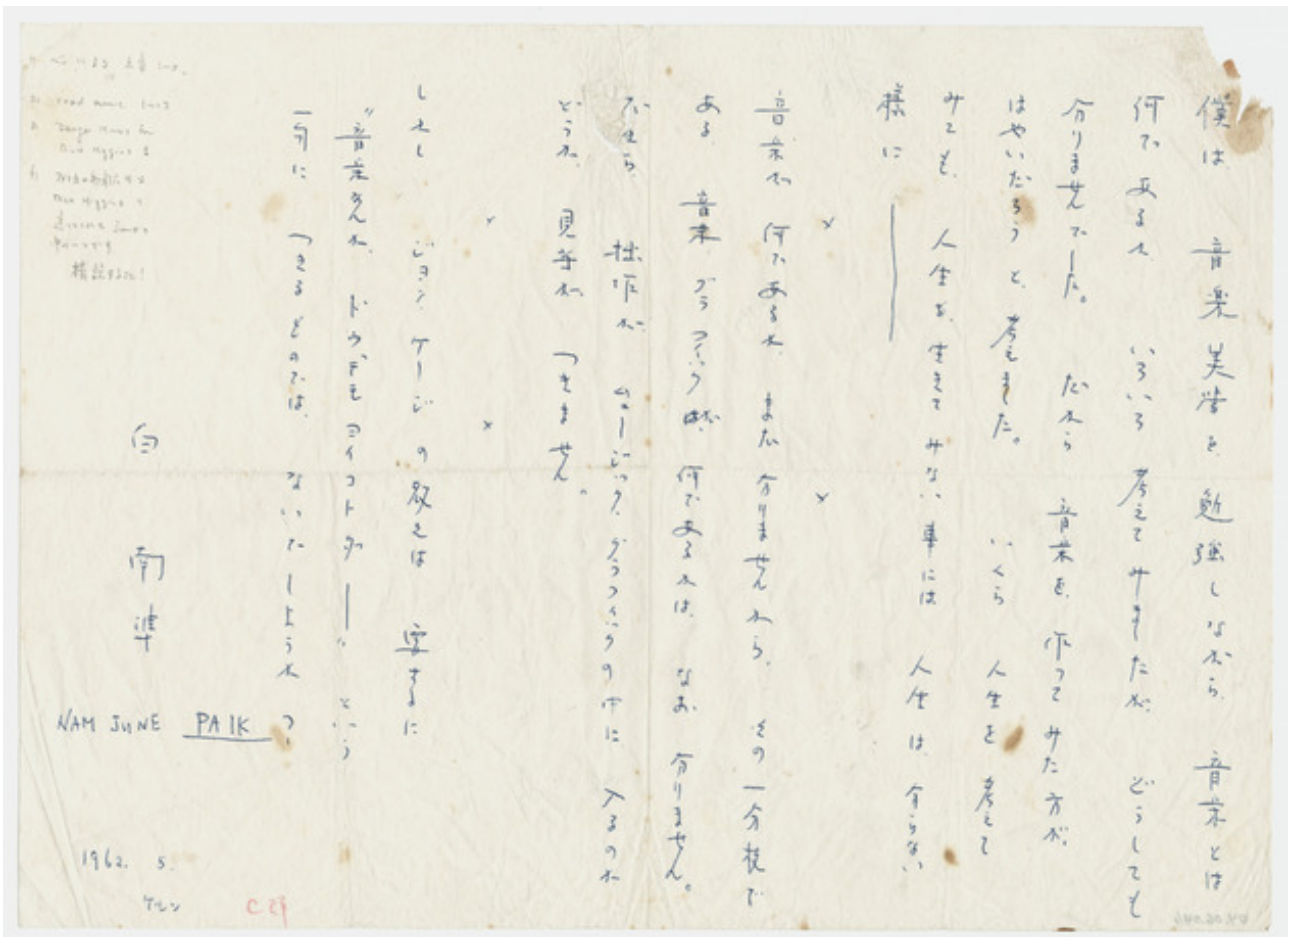 僕は 音楽美学を 勉強しながら、音楽とは
何で あるか いろいろ 考えて みましたが、 どうしても
分りませんでした。 だから 音楽を 作って みた方が、
はやいだろう と、考えました。 いくら 人生を 考えて
みても、 人生を、生きて みない 事には 人生は 分らない
様に ———
× ×
音楽が 何であるか、 まだ 分りませんから、 その一分枝で
ある、 音楽グラフィックが、何であるかは、 なお 分りません。
だから 拙作が ムュージック、グラフィックの中に 入るのか
どうか、 見等が つきません。
× ×
しかし ジョン、ケージ の教えは 要するに
"音楽なんか、 ドウデモ ヨイコトダー" という
一句に つきるものでは、 ないでしようか
白 南 準
NAM JUNE PAIK
1962. 5.
ケルン
C 29
read music
Dick Higgins
Dick Higgins